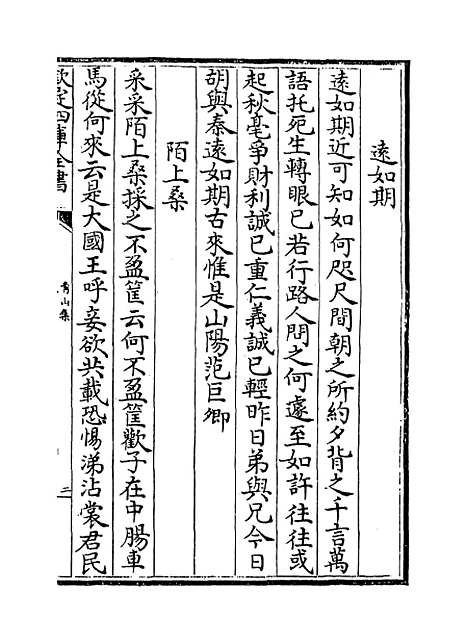 遠如期
遠如期近可知如何咫尺間朝之所約夕背之千言萬
語托死生轉眼已若行路人問之何遽至如許往往或
起秋毫爭財利誠已重仁義誠已輕昨日弟與兄今日
胡與秦遠如期古來惟是山陽范巨卿
陌上桑
采采陌上桑採之不盈筐云何不盈筐歡子在中腸車
馬從何來云是大國王呼妾欲共載恐惕涕沾裳君民
欽定四庫全書
青山集
二